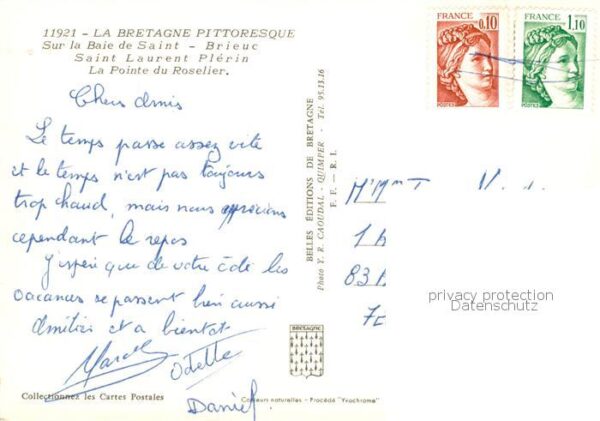 11921 - LA BRETAGNE PITTORESQUE
Sur la Baie de Saint - Brieuc
Saint Laurent Plérin
La Pointe du Roselier.
FRANCE
0,10
POSTES
FRANCE
1,10
POSTES
Chers Amis
Le temps passe assez vite
et le temps n'est pas toujours
trop chaud, mais nous apprécions
cependant le repos
J'espère que de votre côté les
vacances se passent bien aussi
Amitiés et a bientot
Marcel
Odette
Daniel
BELLES ÉDITIONS DE BRETAGNE
Photo Y. R. CAOUDAL - QUIMPER - Tél. 95.13.16
F. F. - R. I.
M' Mme T
1
83
privacy protection
Datenschutz
BRETAGNE
Collectionnez les Cartes Postales
Couleurs naturelles - Procédé "Yvochrome"